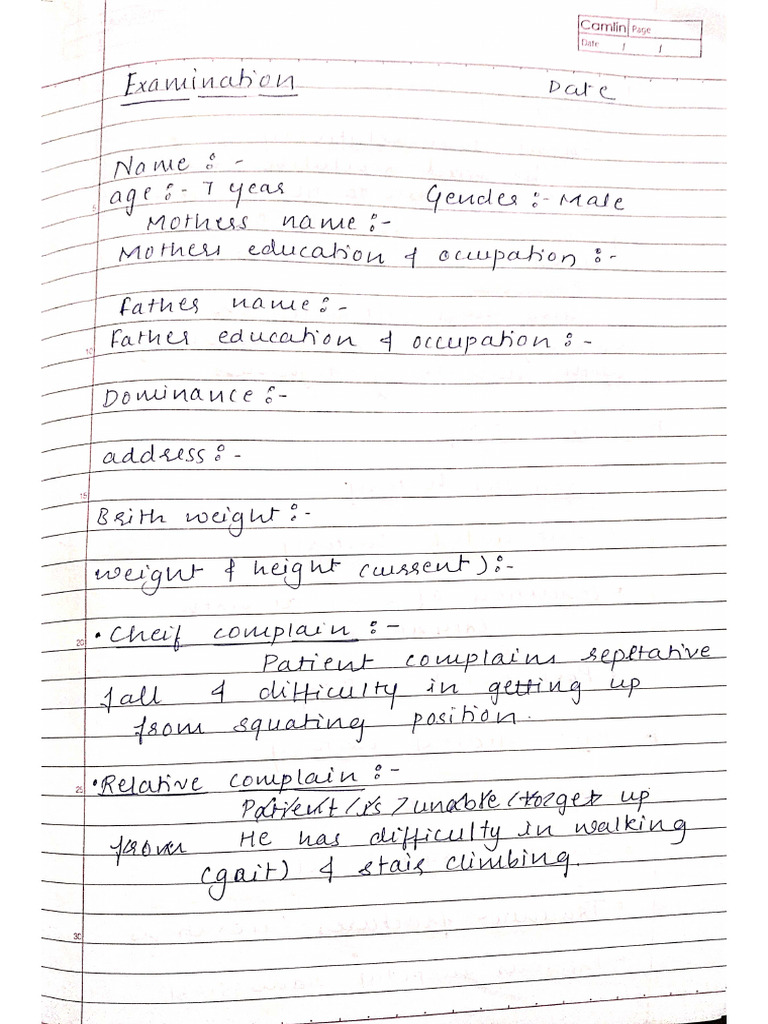 Camlin Page
Date / /
Examination Date
Name :-
5 age :- 7 year Gender :- Male
Mothers name :-
Mothers education & occupation :-
father name :-
10 father education & occupation :-
Dominance :-
address :-
15
Brith weight :-
weight & height (current) :-
20 • Cheif complain :-
Patient complains reptative
fall & difficulty in getting up
from squating position.
25 • Relative complain :-
Patient is unable to get up
from He has difficulty in walking
(gait) & stair climbing.
30